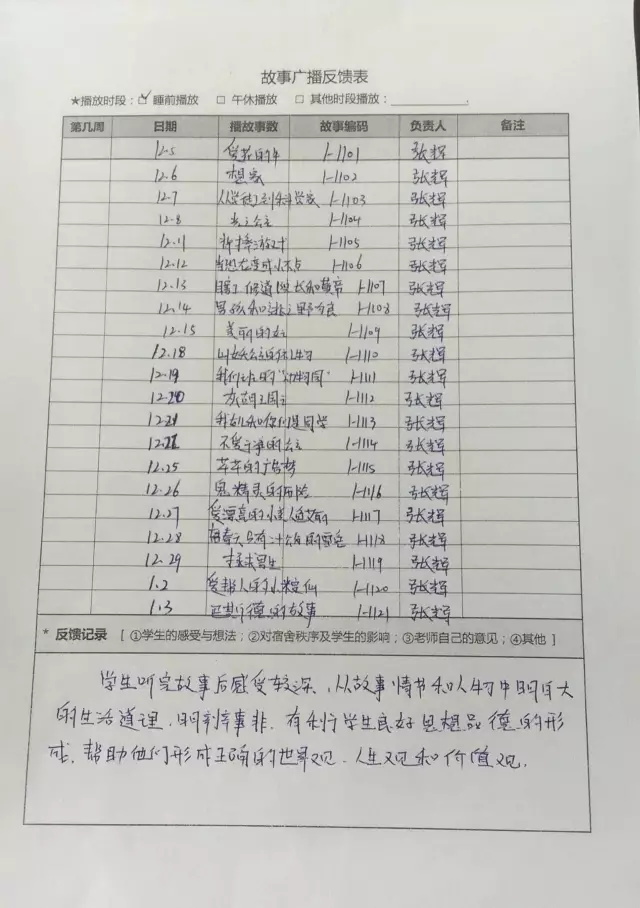 故事广播反馈表
★播放时段：☑ 睡前播放 □ 午休播放 □ 其他时段播放：
第几周 日期 播故事数 故事编码 负责人 备注
12.5 1-1101 张辉
12.6 想家 1-1102 张辉
12.7 从学徒工到科学家 1-1103 张辉
12.8 公主 1-1104 张辉
12.11 1-1105 张辉
12.12 当恐龙变成小不点 1-1106 张辉
12.13 1-1107 张辉
12.14 男孩和 1-1108 张辉
12.15 美丽的 1-1109 张辉
12.18 1-1110 张辉
12.19 我们班的“动物园” 1-1111 张辉
12.20 1-1112 张辉
12.21 我和你们是同学 1-1113 张辉
12.22 不爱干净的公主 1-1114 张辉
12.25 的广告梦 1-1115 张辉
12.26 鬼精灵的历险 1-1116 张辉
12.27 爱漂亮的小美人 1-1117 张辉
12.28 每春天只有二十公分的雪 1-1118 张辉
12.29 男生 1-1119 张辉
1.2 爱帮人的小 仙 1-1120 张辉
1.3 巴斯德的故事 1-1121 张辉
* 反馈记录 [ ①学生的感受与想法；②对宿舍秩序及学生的影响；③老师自己的意见；④其他 ]
学生听完故事后感受较深、从故事情节和人物中明白大
的生活道理，明辨事非. 有利于学生良好思想品德的形
成. 帮助他们形成正确的世界观、人生观和价值观.